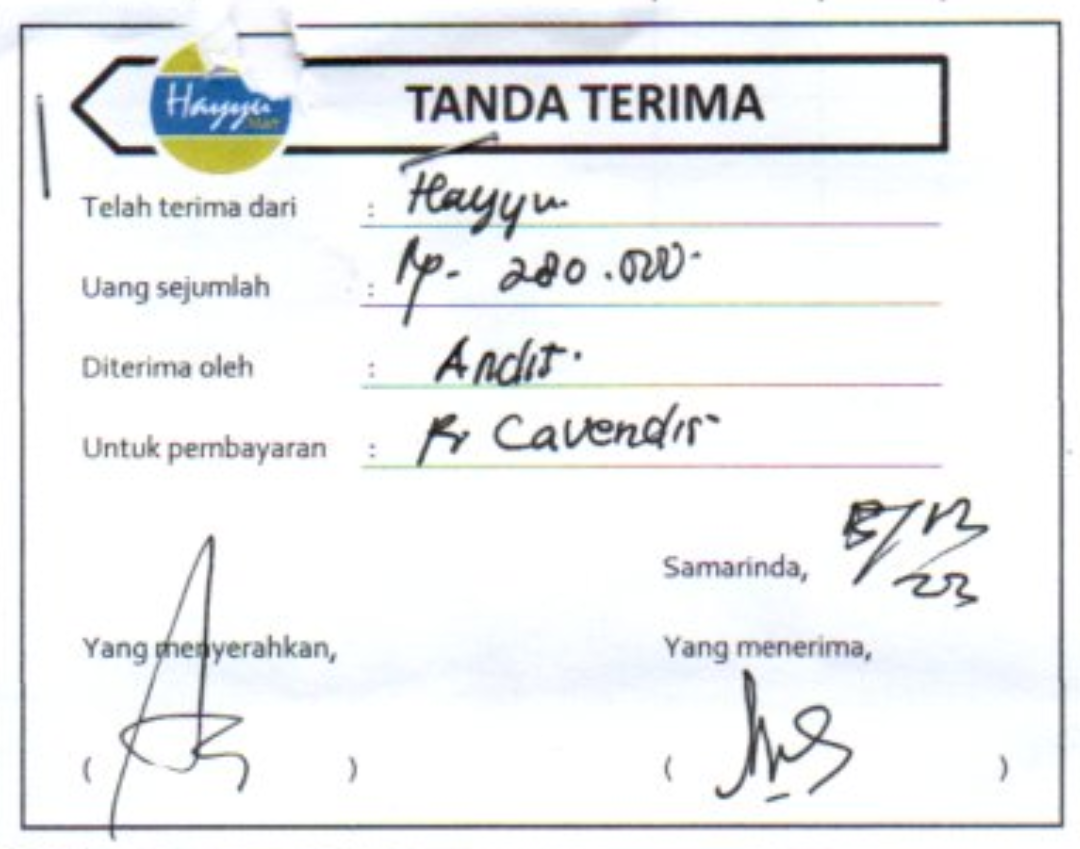 Hayyu Mart
TANDA TERIMA
Telah terima dari : Hayyu
Uang sejumlah : Rp. 280.000-
Diterima oleh : Andit.
Untuk pembayaran : Cavendis
Samarinda,
Yang menyerahkan, Yang menerima,
( ) ( )